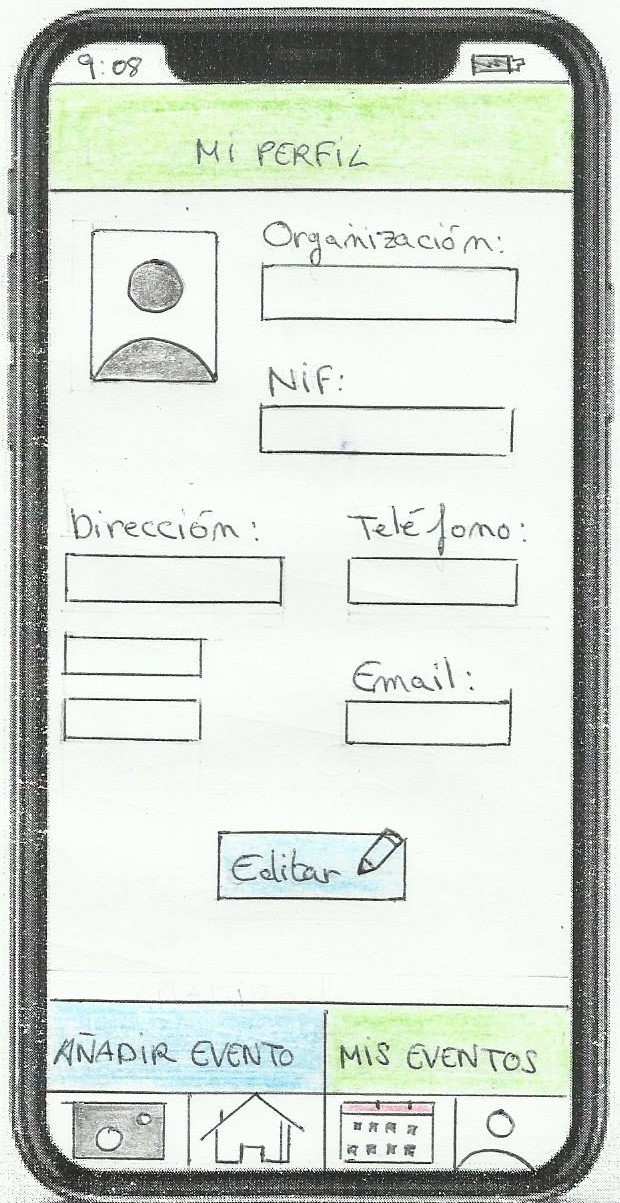 9:08
Mi PERFiL
Organización:
NiF:
Dirección:
Teléfono:
Email:
Editar
AÑADIR EVENTO
MIS EVENTOS